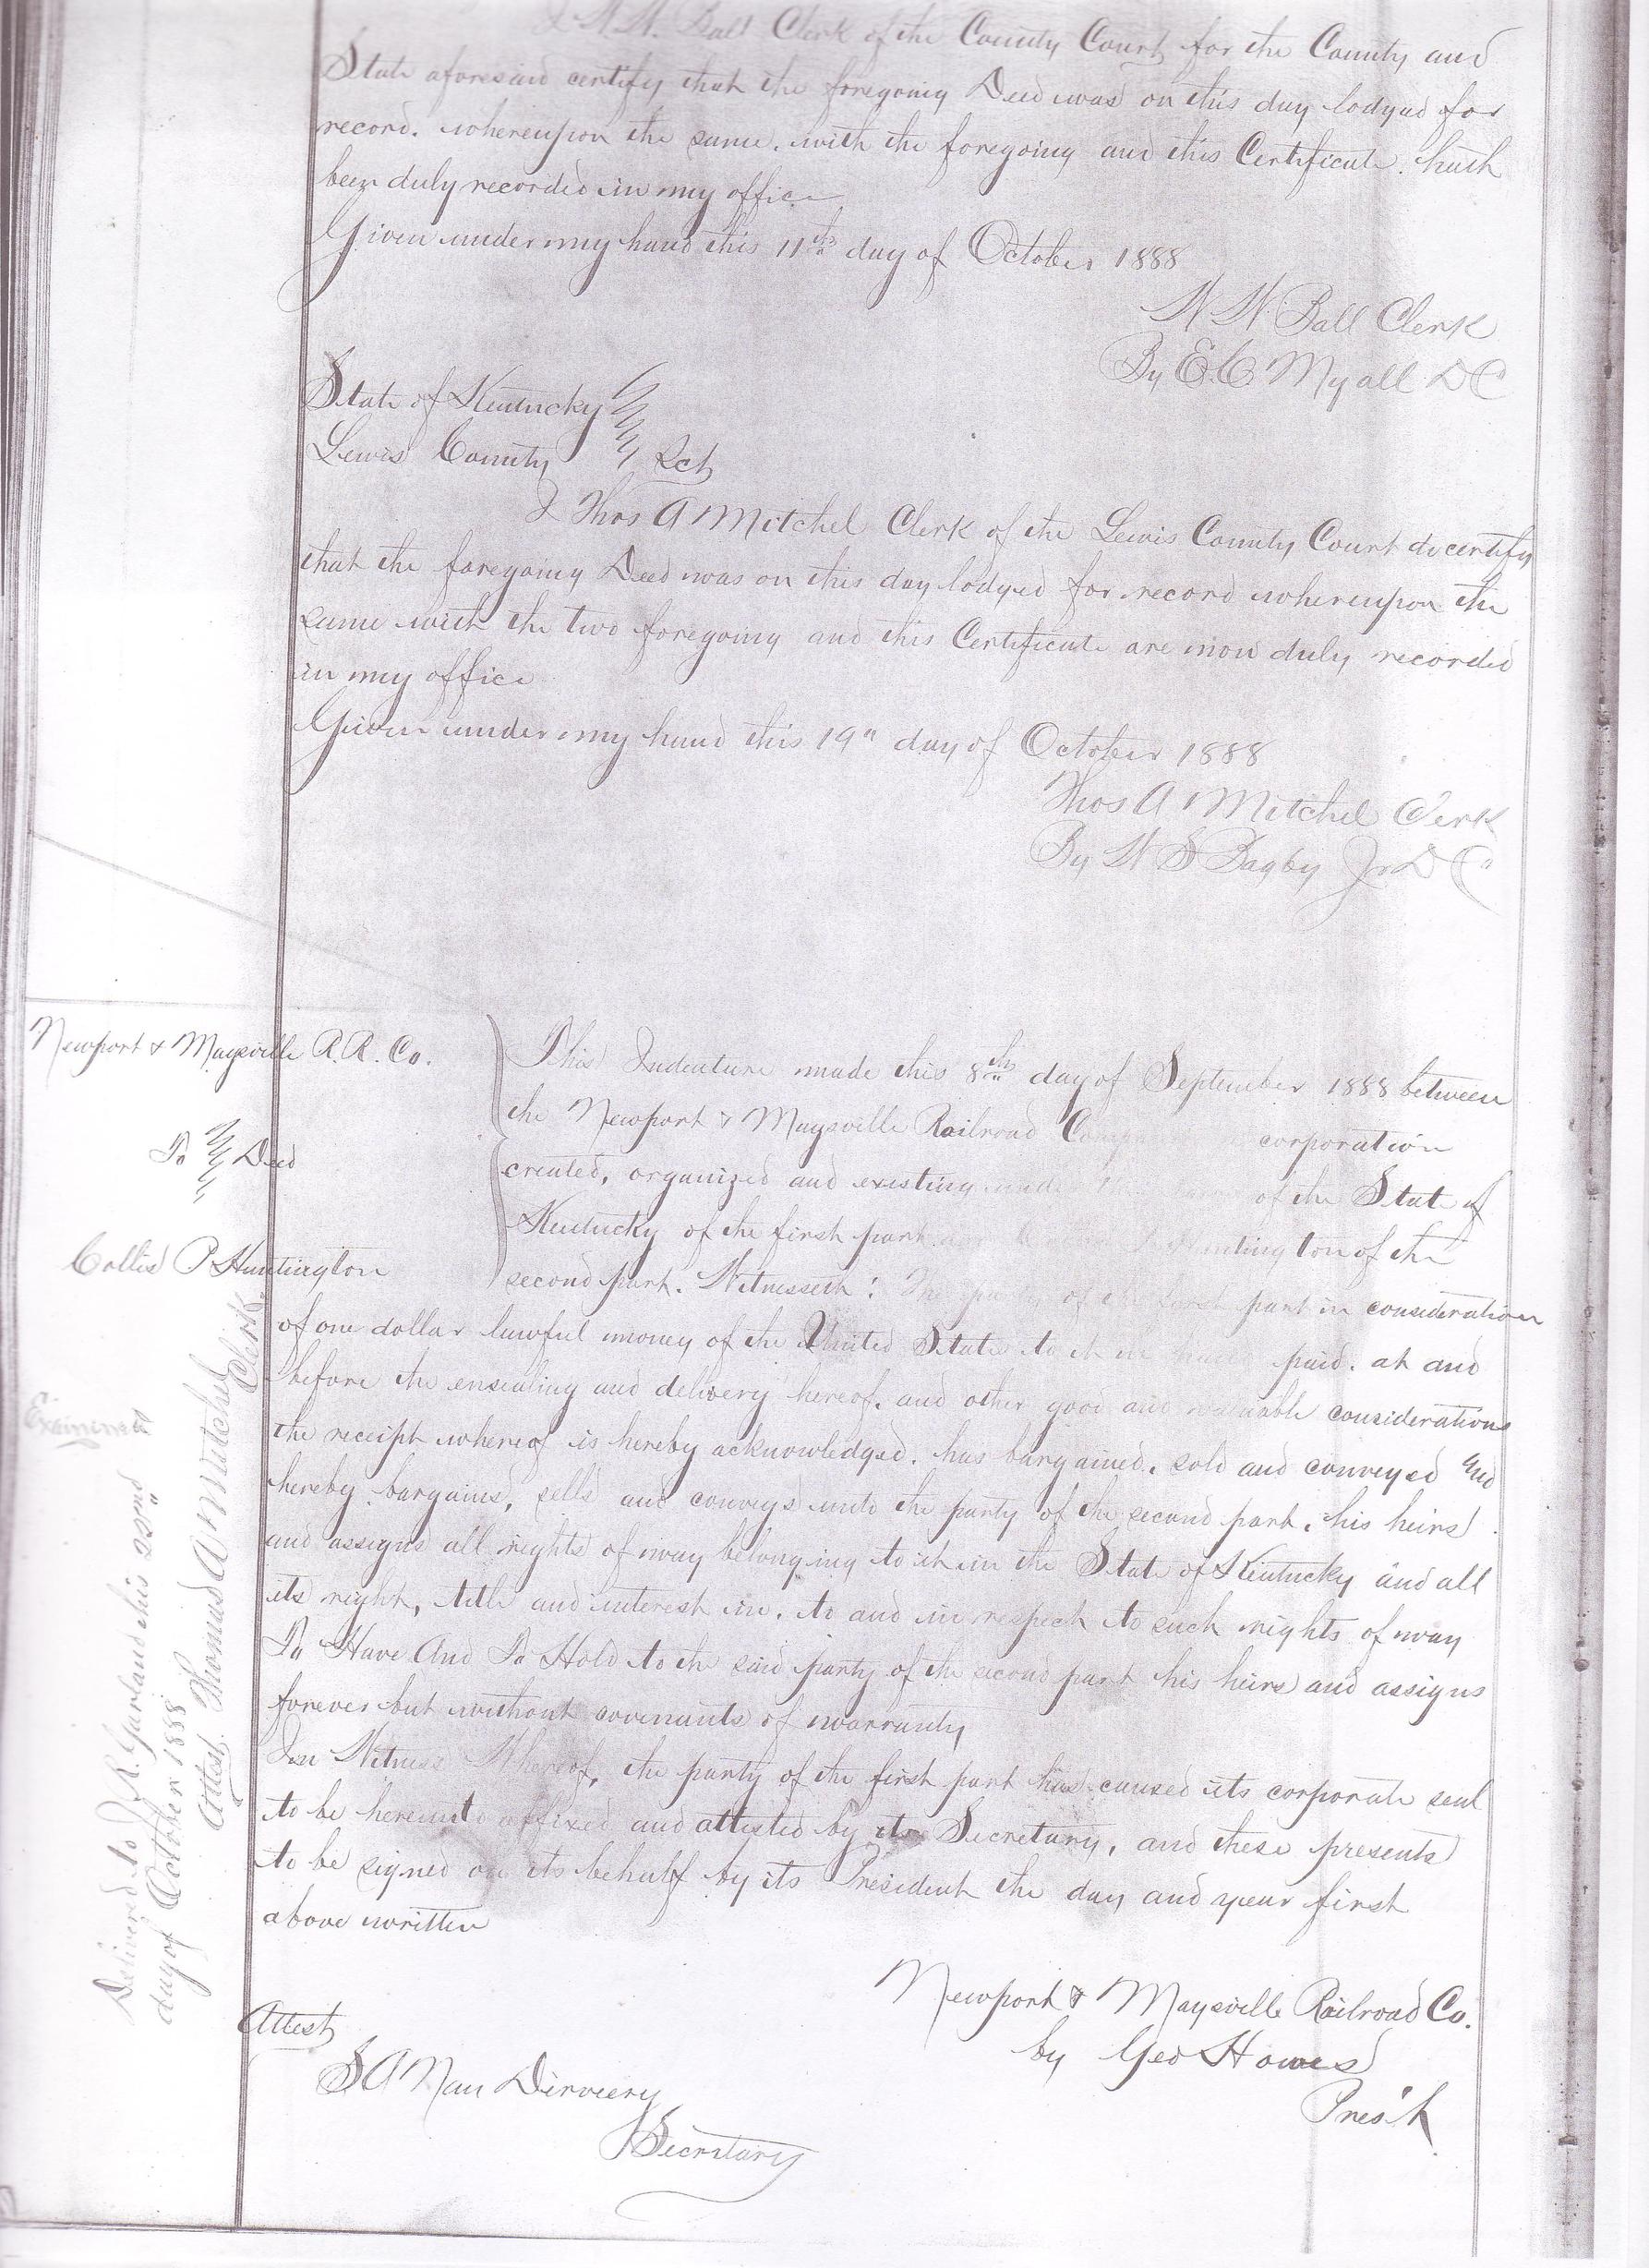 Ball Clerk of the County Court for the County and
State aforesaid certify that the foregoing Deed was on this day lodged for
record. whereupon the same. with the foregoing and this Certificate. hath
been duly recorded in my office
Given under my hand this 11th day of October 1888
W W Ball Clerk
By E.C. Myall D C
State of Kentucky
Lewis County Sct
I Thos A Mitchel Clerk of the Lewis County Court do certify
that the foregoing Deed was on this day lodged for record whereupon the
same with the two foregoing and this Certificate are now duly recorded
in my office
Given under my hand this 19" day of October 1888
Thos A Mitchel Clerk
By W S Bagby Jr D C
Newport & Maysville R.R. Co.
To Deed
Collis P Huntington
This Indenture made this 8th day of September 1888 between
the Newport & Maysville Railroad corporation
created, organized and existing under of the State of
Kentucky of the first part Huntington of the
second part. Witnesseth: The party of the first part in consideration
of one dollar lawful money of the United States to it in hand paid. at and
before the ensealing and delivery hereof. and other good and valuable considerations
the receipt whereof is hereby acknowledged. has bargained. sold and conveyed and
hereby bargains, sells and conveys unto the party of the second part. his heirs
and assigns all rights of way belonging to it in the State of Kentucky and all
its right, title and interest in. to and in respect to such rights of way
To Have And To Hold to the said party of the second part his heirs and assigns
forever but without covenants of warranty
In Witness Whereof, the party of the first part has caused its corporate seal
to be hereunto affixed and attested by its Secretary, and these presents
to be signed on its behalf by its President the day and year first
above written
Newport & Maysville Railroad Co.
by Geo Howes
Pres't
Attest
S A Van
Secretary
Examined
Delivered to R. Garland this 22nd
day of October 1888
Attest, Thomas A Mitchel
Clerk.